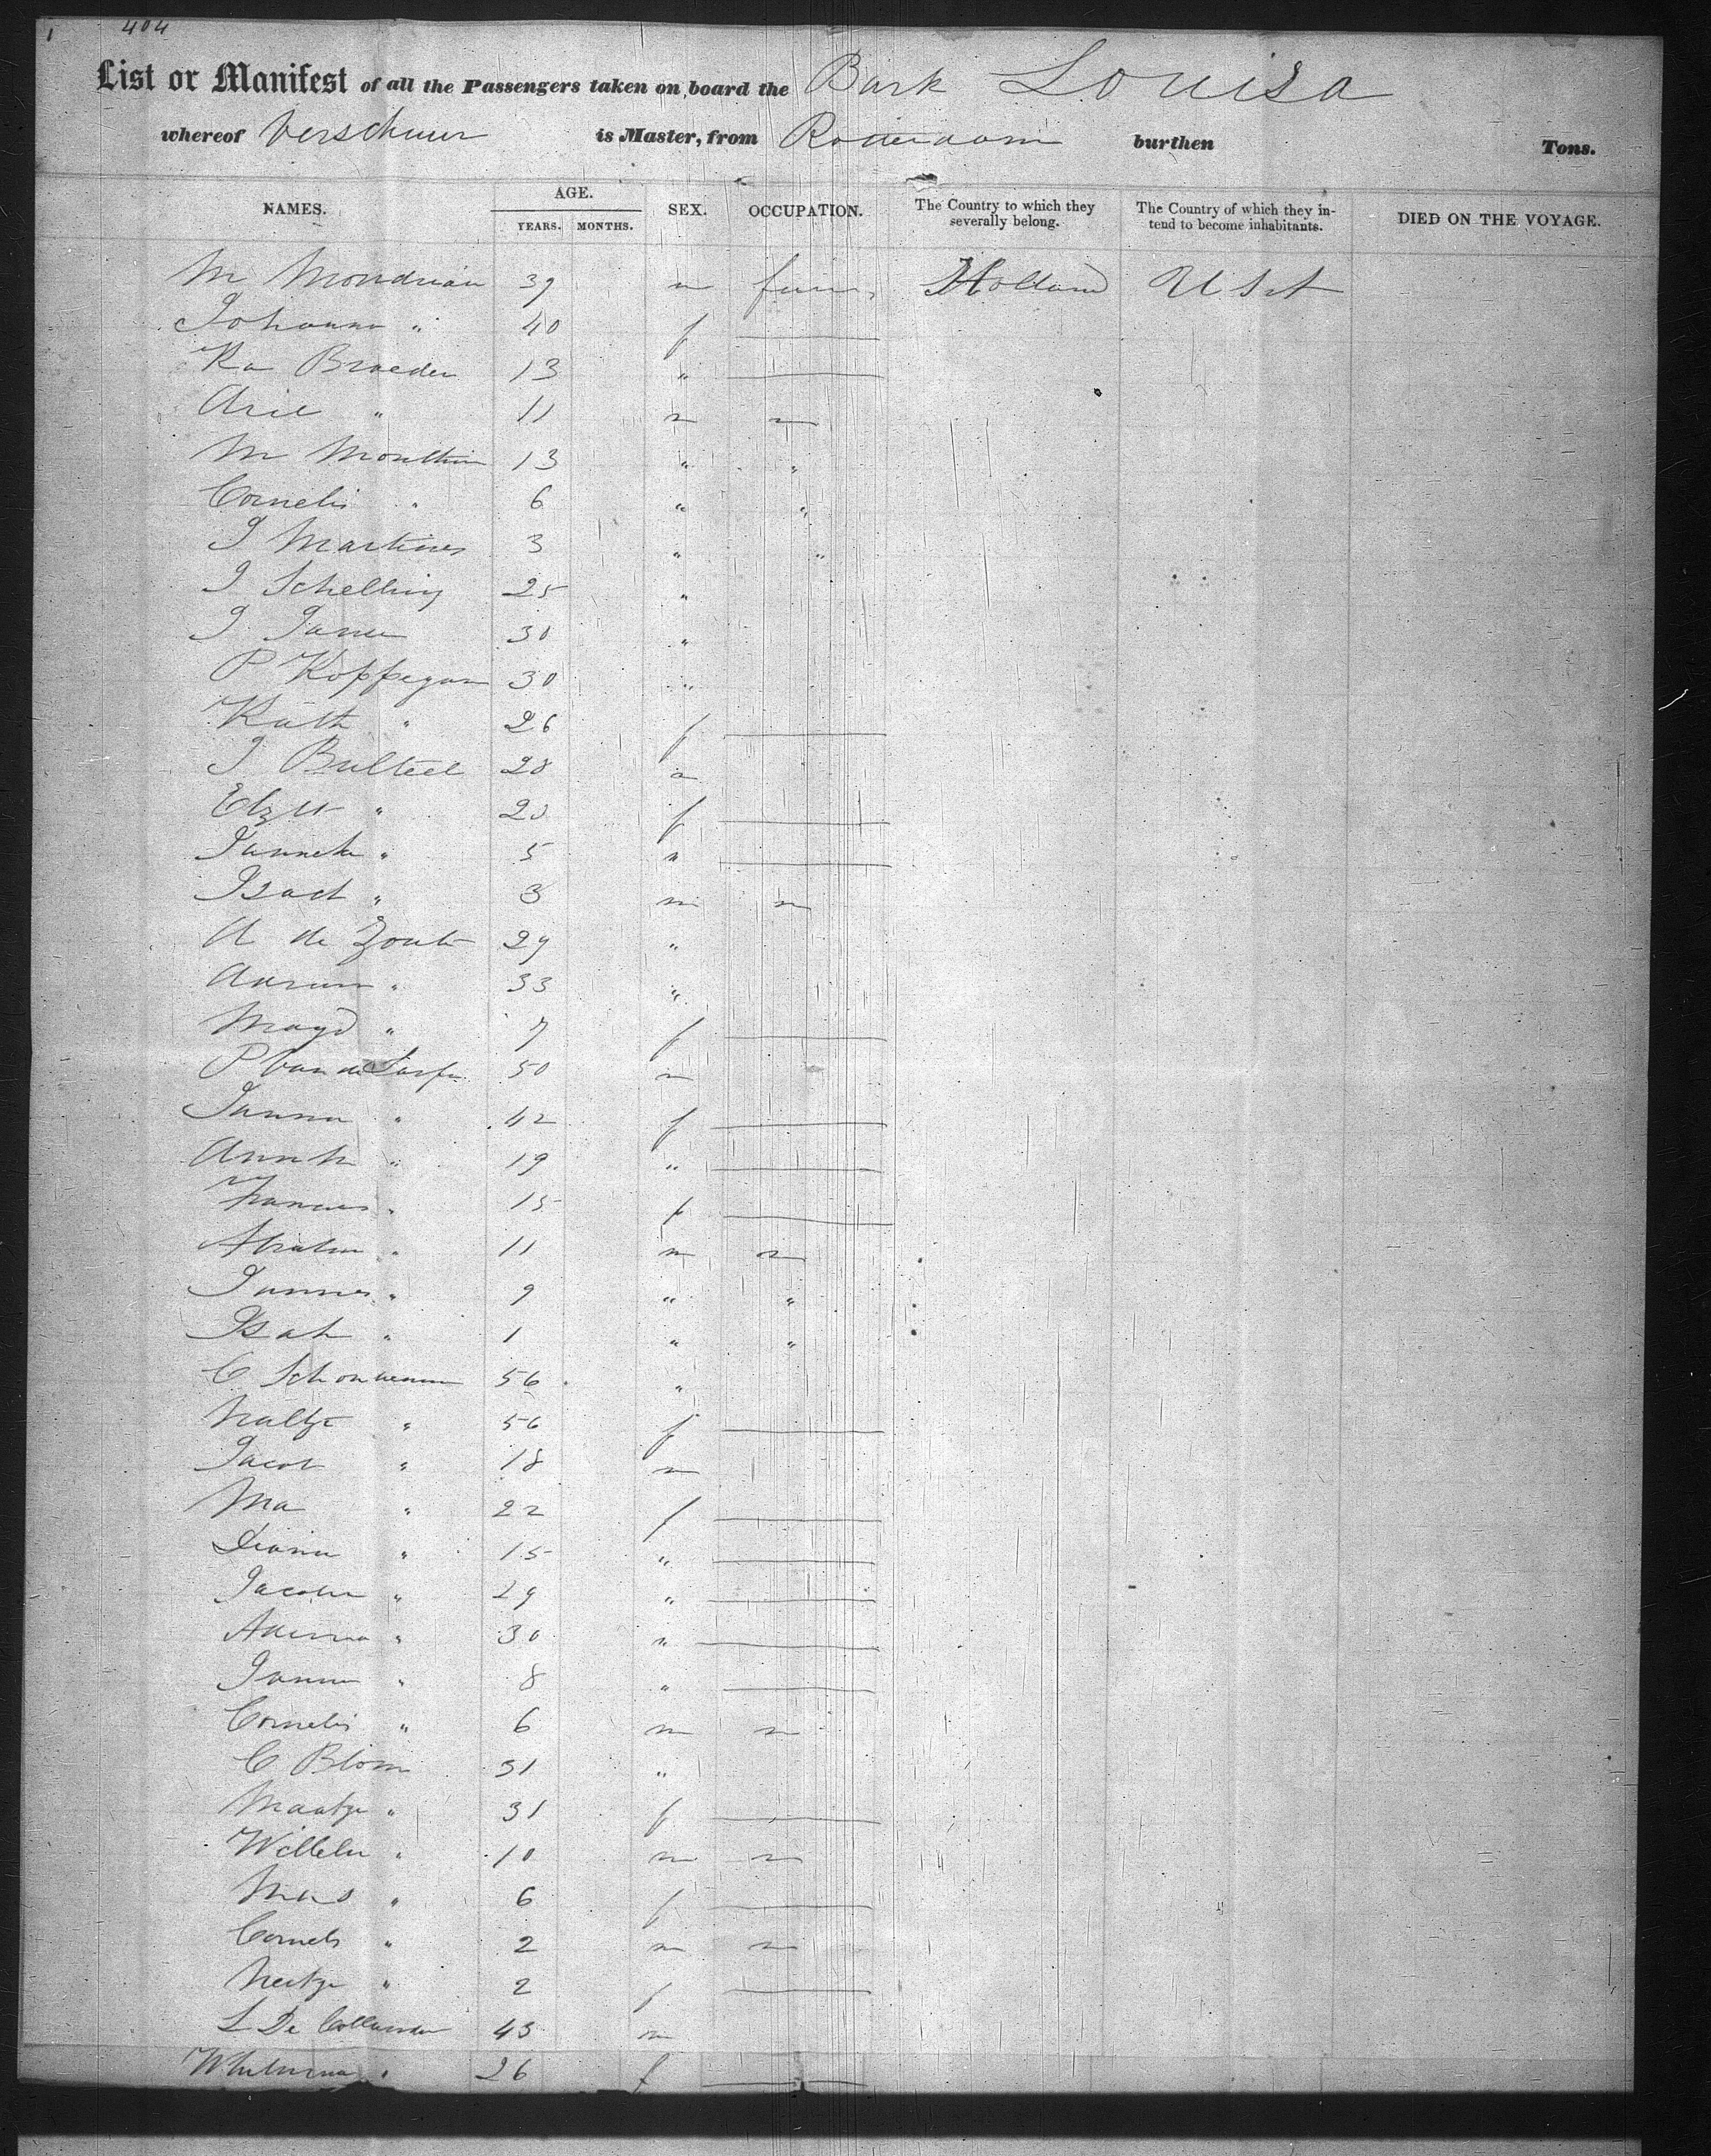 1 404
List or Manifest of all the Passengers taken on board the Bark Louisa
whereof Verschuur is Master, from Rotterdam burthen Tons.
NAMES. AGE. YEARS. MONTHS. SEX. OCCUPATION. The Country to which they severally belong. The Country of which they intend to become inhabitants. DIED ON THE VOYAGE.
M Mondrian 39 m Holland U S A
Johanna " 40 f
Ka Broeder 13 "
Arie " 11 m
M 13 " "
Cornelis " 6 " "
J Martines 3 " "
J Schelling 25 "
J 30 "
P Koppegan 30 "
Kath " 26 f
J Bulteel 28 m
Elzth " 23 f
Janneke " 5 "
Isack " 3 m
A de Zoute 29 "
" 33 "
Magd " 7 f
P Van de 50 m
Janna " 42 f
" 19 "
" 15 f
Abrahm " 11 m
Jannes " 9 " "
Isak " 1 " "
C 56 "
" 56 f
Jacob " 18 m
Ma " 22 f
" 15 "
" 29 "
" 30 "
Janna " 8 "
Cornelis " 6 m
C Blom 31 "
Maatje " 31 f
Willem " 10 m
" 6 f
Cornels " 2 m
Neetje " 2 f
L De 43 m
" 26 f